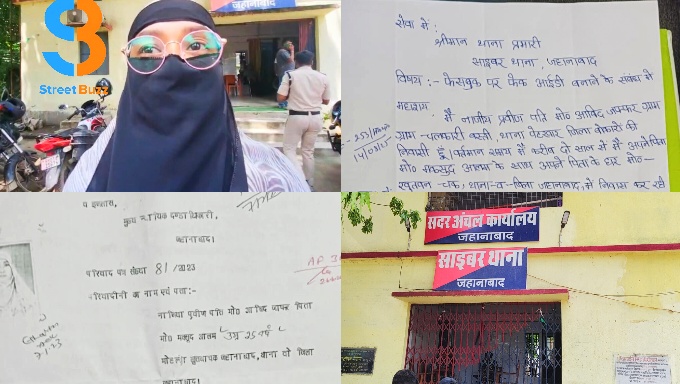 StreetBuzz
जहानाबाद
सेवा में :
श्रीमान थाना प्रभारी
साइबर थाना, जहानाबाद
विषय :- फेसबुक पर फेक आईडी बनाने के संबंध में
महाशय
मैं नाजीया प्रवीण पति मो० आबिद जफ्फर ग्राम
ग्राम - चलकारी बस्ती, थाना पेटरवार जिला बोकारो की
निवासी हूँ। वर्तमान समय में करीब दो साल से मैं अपने पिता
मो० मकसूद आलम के साथ अपने पिता के घर मो०-
थाना-व-जिला जहानाबाद, में निवास कर रही
मुख्य न्यायिक दण्डाधिकारी,
जहानाबाद।
परिवाद पत्र संख्या 81 /2023
परिवादीनी का नाम एवं पता:-
नाजिया प्रवीण पति मो० आबिद जाफर पिता
मो० मकसूद आलम उम्र 25 वर्ष
मोहल्ला जहानाबाद, थाना वो जिला
जहानाबाद।
सदर अंचल कार्यालय
जहानाबाद
साइबर थाना
जहानाबाद